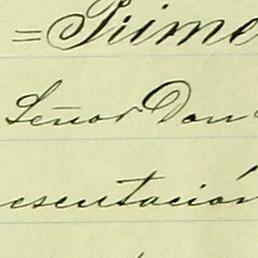 = Prime
Señor Don
esentación